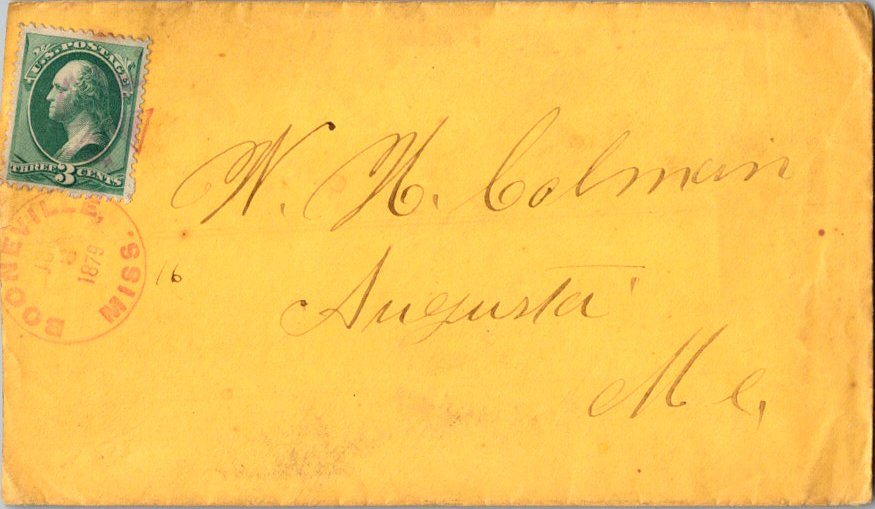 U.S. POSTAGE
THREE 3 CENTS
BOONEVILLE, MISS.
1879
W. H. Colman
16
Augusta
Me.